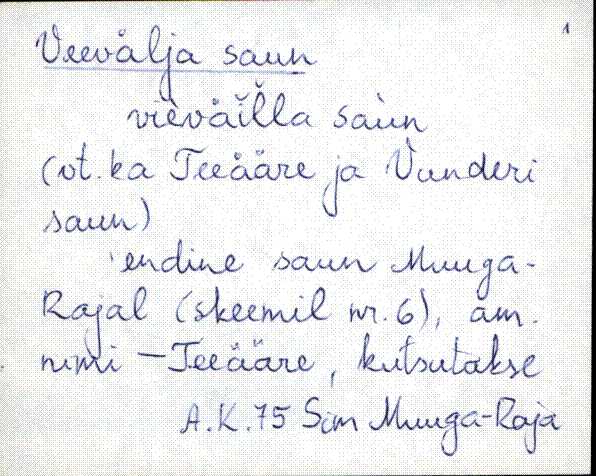 1
Veevälja saun
vìèväĭl̆l̆a saùn
(vt. ka Teeääre ja Vunderi
saun)
endine saun Muuga-
Rajal (skeemil nr. 6), am.
nimi – Teeääre, kutsutakse
A.K. 75 Sim Muuga-Raja